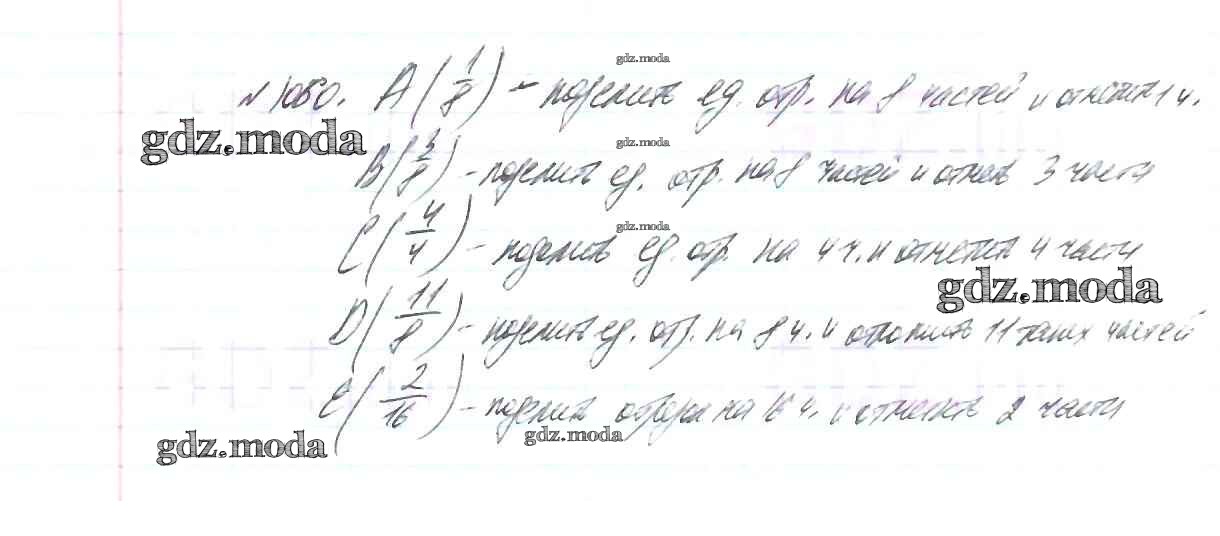 gdz.moda
№ 1060. A (1/8) - поделить ед. отр. на 8 частей и отметить 1 ч.
gdz.moda
gdz.moda
B (3/8) - поделить ед. отр. на 8 частей и отмет 3 части
gdz.moda
C (4/4) - поделить ед. отр. на 4 ч. и отметить 4 части
gdz.moda
D (11/8) - поделить ед. отр. на 8 ч. и отложить 11 таких частей
E (2/16) - поделить отрезок на 16 ч. и отметить 2 части
gdz.moda
gdz.moda